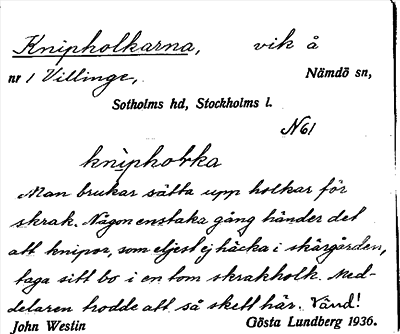 Knipholkarna, vik å
nr 1 Villinge, Nämdö sn,
Sotholms hd, Stockholms l.
N61
knipholka
Man brukar sätta upp holkar för
skrak. Någon enstaka gång händer det
att knipor, som eljest ej häcka i skärgården,
taga sitt bo i en tom skrakholk. Med-
delaren trodde att så skett här. Vänd!
John Westin Gösta Lundberg 1936.